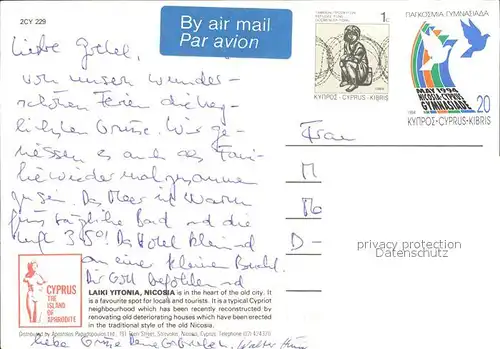 2CY 229
By air mail
Par avion
1c
ΚΥΠΡΟΣ-CYPRUS-KIBRIS
ΠΑΓΚΟΣΜΙΑ ΓΥΜΝΑΣΙΑΔΑ
MAY 1994
NICOSIA-CYPRUS
GYMNASIADE
20
ΚΥΠΡΟΣ-CYPRUS-KIBRIS
Liebe Gretel,
von unseren wunder-
schönen Ferien die herz-
lichsten Grüsse. Wir ge-
niessen es auch als Fami-
lie wieder mal zusammen
zu sein. Das Meer ist warm
fürs tägliche Bad und die
Luft 35°! Das Hotel klein und
an einer kleinen Bucht.
Gott befohlen und
liebe Grüsse
Walter
Frau
M
Mo
D-
privacy protection
Datenschutz
CYPRUS
THE
ISLAND
OF
APHRODITE
LAIKI YITONIA, NICOSIA is in the heart of the old city. It
is a favourite spot for locals and tourists. It is a typical Cypriot
neighbourhood which has been recently reconstructed by
renovating old deteriorating houses which have been erected
in the traditional style of the old Nicosia.
Distributed by Nicosia, Cyprus, Telephone